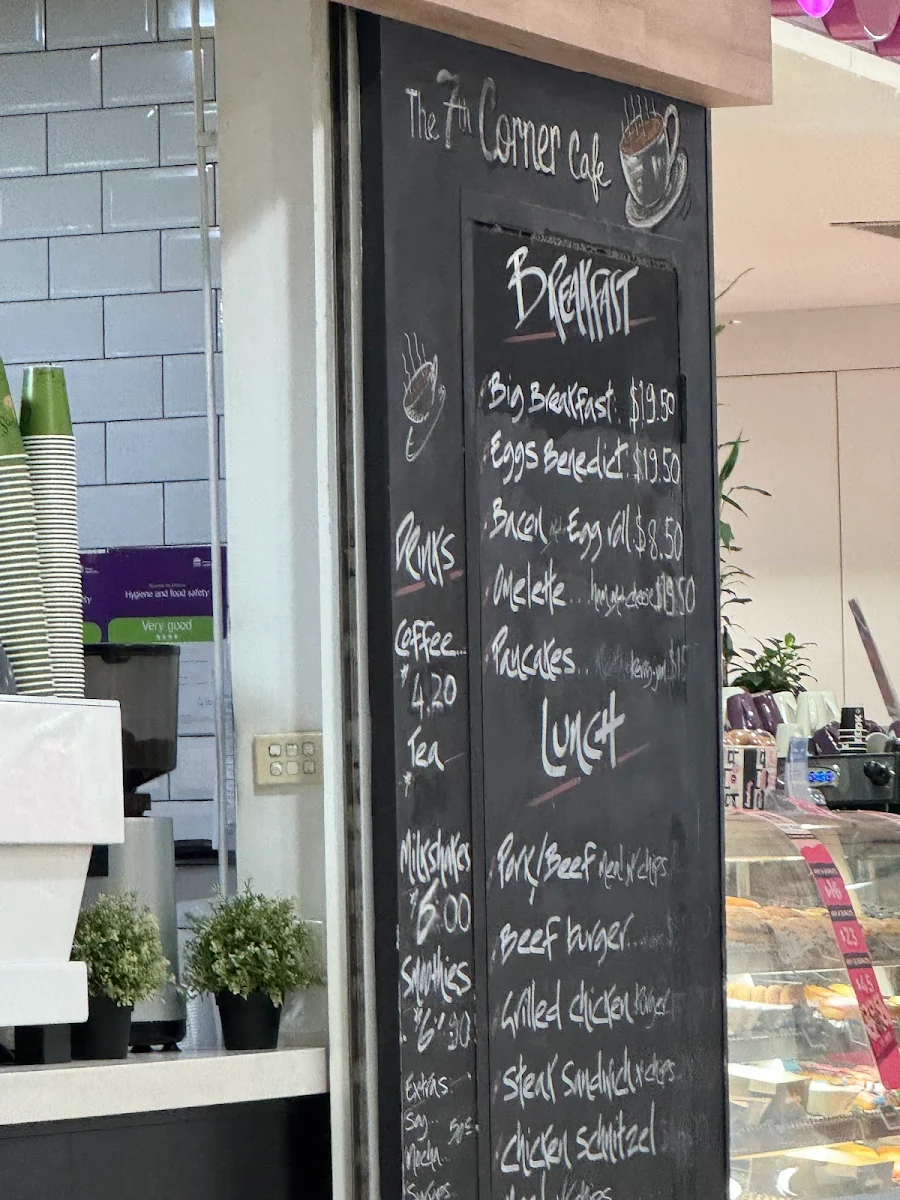 The 7th Corner Cafe
BREAKFAST
Big Breakfast. $19.50
Eggs Benedict $19.50
Bacon Egg roll $8.50
Omelette... $19.50
Pancakes..
LUNCH
Pork/Beef meal n' chips
Beef burger...
Grilled chicken burger
Steak Sandwich n' chips
Chicken Schnitzel
Drinks
Coffee...
$4.20
Tea
Milkshakes
$6.00
Smoothies
$6.90
Extras.
Soy..
50c
Mocha..
Syrups
Hygiene and food safety
Very good